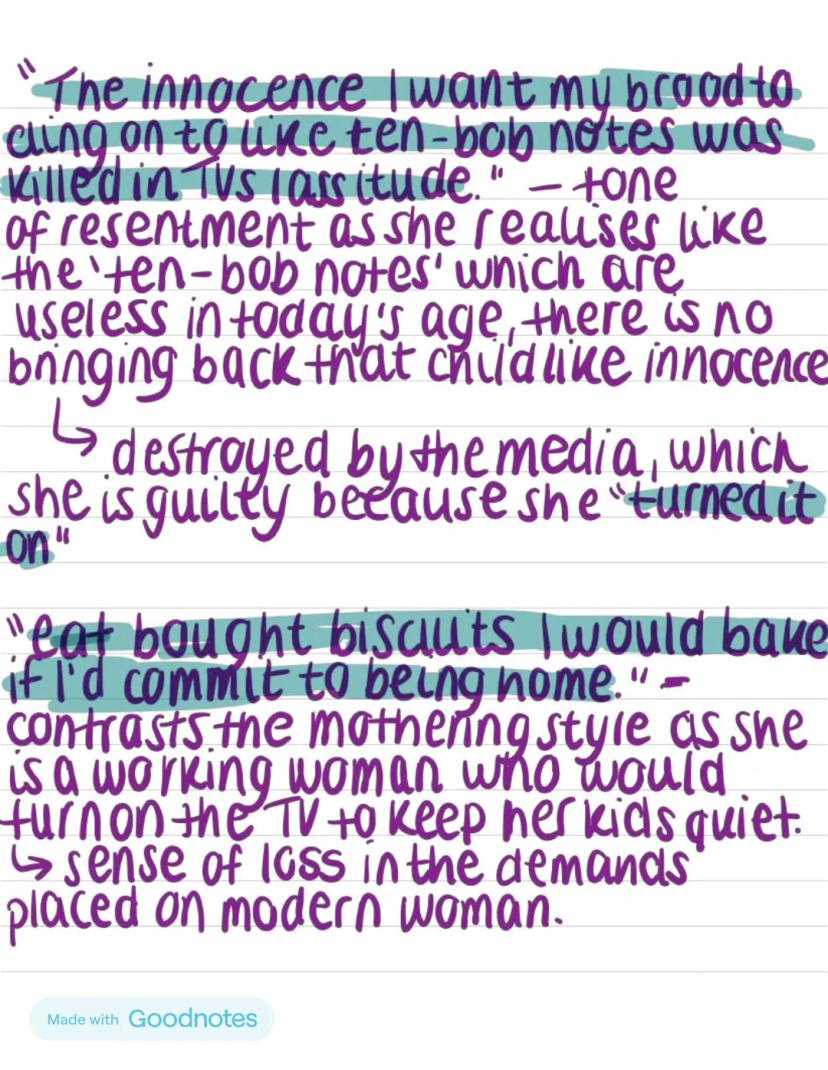 "The innocence I want my brood to
cling on to like ten-bob notes was
killed in TVs lassitude." – tone
of resentment as she realises like
the 'ten-bob notes' which are
useless in today's age, there is no
bringing back that childlike innocence
↳ destroyed by the media, which
she is guilty because she "turned it
on"
"eat bought biscuits I would bake
if I'd commit to being home." -
contrasts the mothering style as she
is a working woman who would
turn on the TV to keep her kids quiet.
↳ sense of loss in the demands
placed on modern woman.
Made with Goodnotes